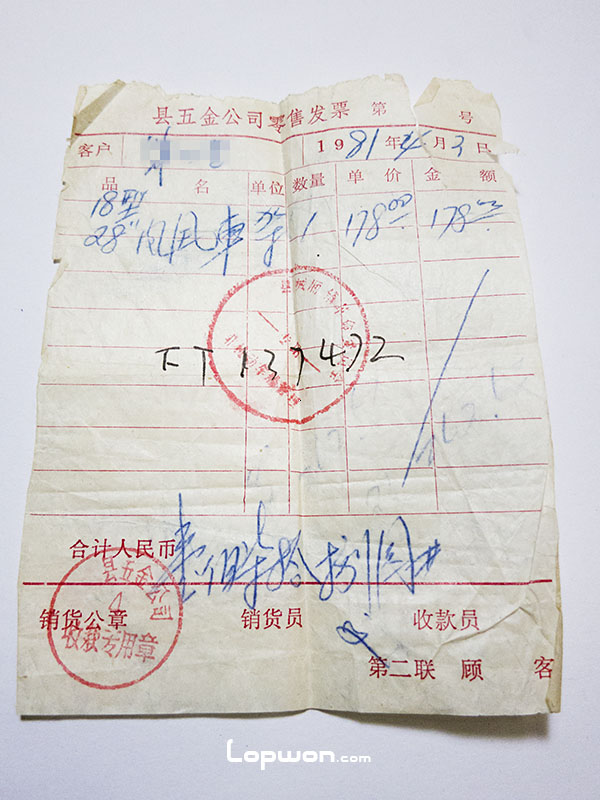 县五金公司零售发票 第 号
客户 1981年 月3日
品 名 单位 数量 单价 金额
18型
28" 凤凰車 1 178.00 178.00
FT 137472
合计人民币 壹佰柒拾捌
县五金公司
收款专用章
销货公章 销货员 收款员
第二联 顾 客
Lopwon.com